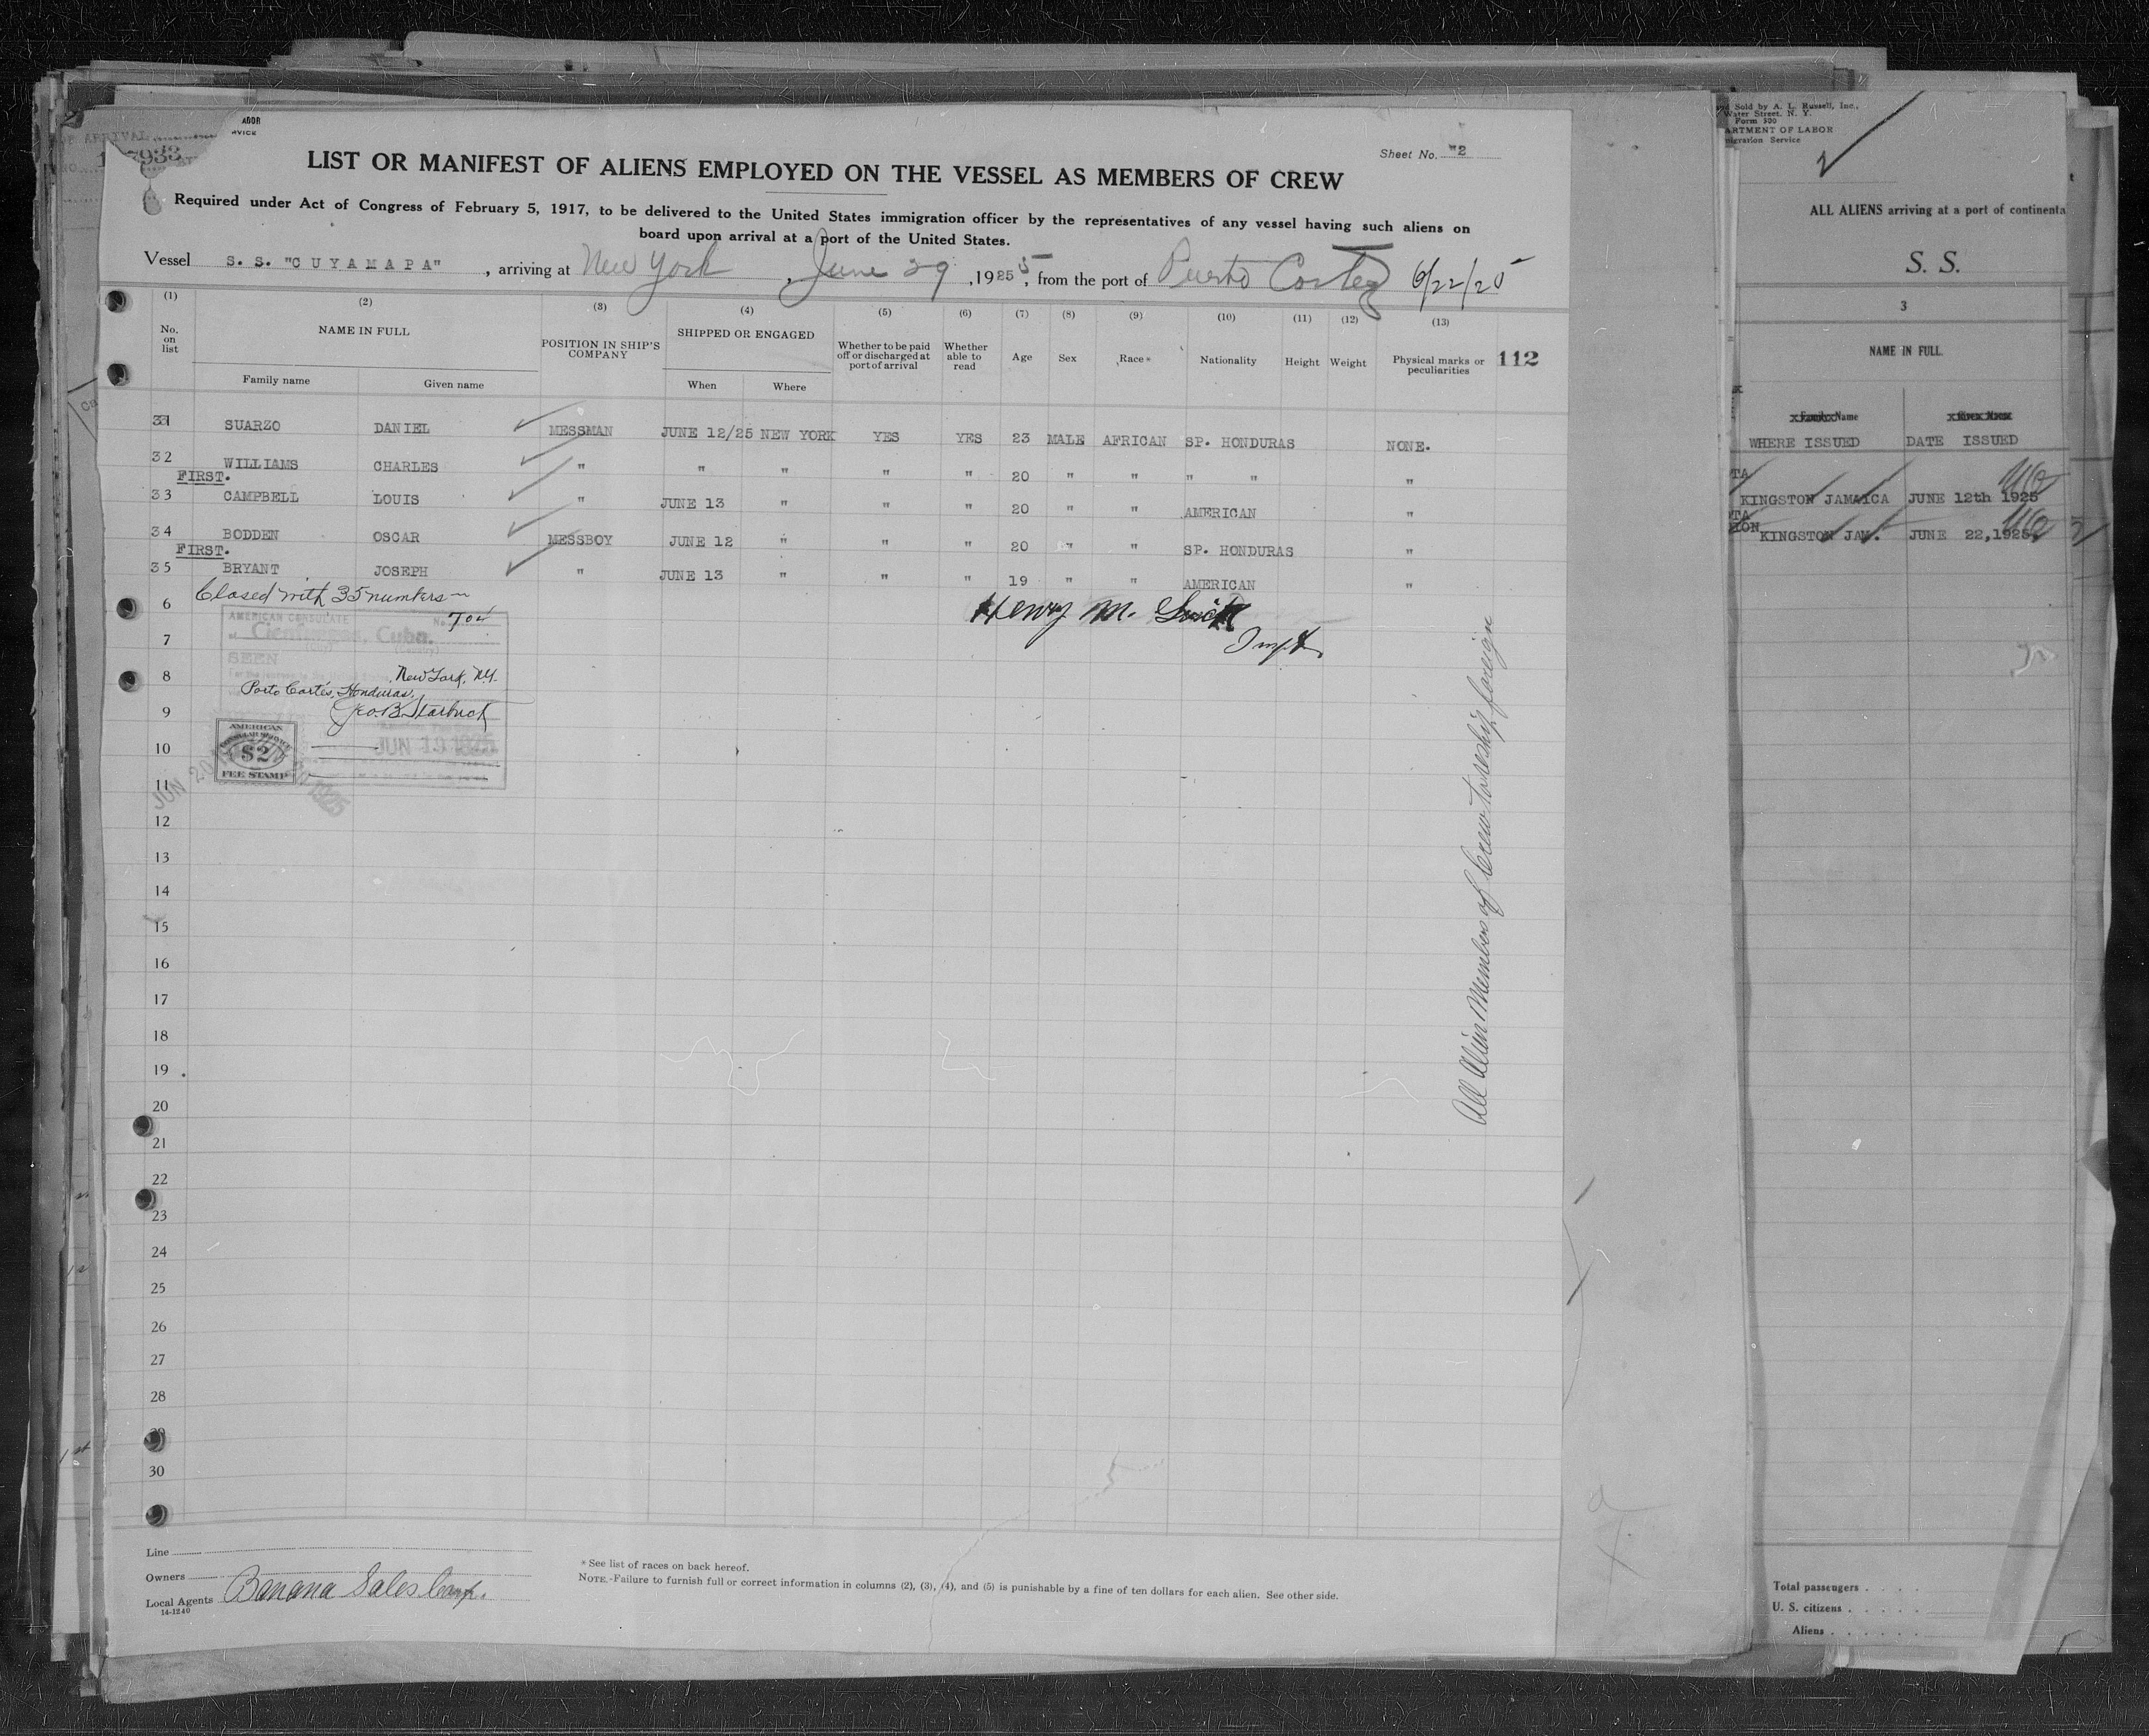 ABOR
RVICE
7933
Sheet No. 2
LIST OR MANIFEST OF ALIENS EMPLOYED ON THE VESSEL AS MEMBERS OF CREW
Required under Act of Congress of February 5, 1917, to be delivered to the United States immigration officer by the representatives of any vessel having such aliens on
board upon arrival at a port of the United States.
Vessel S. S. "CUYAMAPA", arriving at New York, June 29, 1925, from the port of Puerto Cortez 6/22/25
(1) (2) (3) (4) (5) (6) (7) (8) (9) (10) (11) (12) (13)
No. on list NAME IN FULL POSITION IN SHIP'S COMPANY SHIPPED OR ENGAGED Whether to be paid off or discharged at port of arrival Whether able to read Age Sex Race* Nationality Height Weight Physical marks or peculiarities 112
Family name Given name When Where
31 SUARZO DANIEL MESSMAN JUNE 12/25 NEW YORK YES YES 23 MALE AFRICAN SP. HONDURAS NONE.
32 WILLIAMS CHARLES " " " " " 20 " " " " "
FIRST.
33 CAMPBELL LOUIS " JUNE 13 " " " 20 " " AMERICAN "
34 BODDEN OSCAR MESSBOY JUNE 12 " " " 20 " " SP. HONDURAS "
FIRST.
35 BRYANT JOSEPH " JUNE 13 " " " 19 " " AMERICAN "
Closed with 35 numbers
6 Henry M.
AMERICAN CONSULATE No. 704
at Cienfuegos, Cuba.
(City) (Country)
7
SEEN
8 New York, N.Y.
Porto Cortés, Honduras.
9 Geo. B. Starbuck
AMERICAN CONSULAR SERVICE
10 $2 JUN 19 1925
FEE STAMP
11 JUN 20 1925
All Alien Members of Crew to reship foreign
12
13
14
15
16
17
18
19
20
21
22
23
24
25
26
27
28
29
30
Line
Owners
Local Agents Banana Sales Corp.
14-1240
*See list of races on back hereof.
NOTE.-Failure to furnish full or correct information in columns (2), (3), (4), and (5) is punishable by a fine of ten dollars for each alien. See other side.
Sold by A. L. Russell, Inc.,
Water Street, N. Y.
Form 500
ARTMENT OF LABOR
migration Service
ALL ALIENS arriving at a port of continenta
S. S.
3
NAME IN FULL
Family Name
WHERE ISSUED DATE ISSUED
TA
KINGSTON JAMAICA JUNE 12th 1925
TA
ION KINGSTON JAM. JUNE 22,1925.
Total passengers
U. S. citizens
Aliens